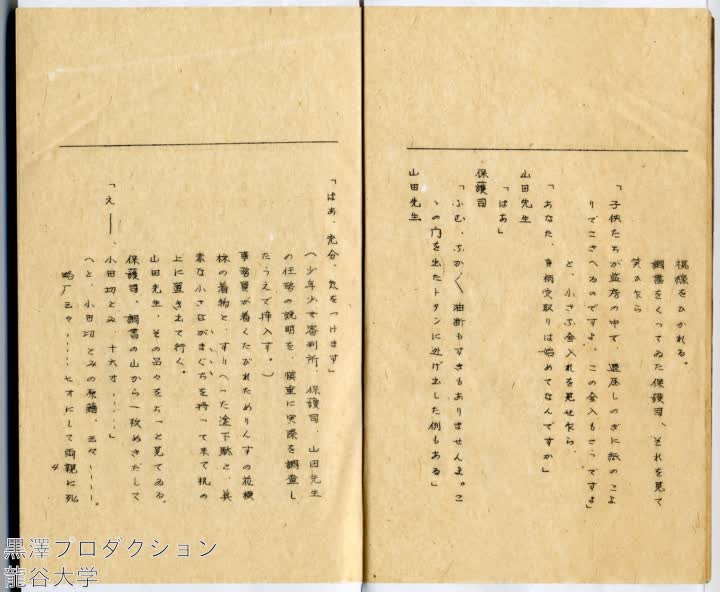 視線をひかれる。
調書をくってゐた保護司、それを見て
笑ひ乍ら
「子供たちが監房の中で 退屈しのぎに紙のこよ
りでこさへるのですよ、この金入もさうですよ」
と、小さな金入れを見せ乍ら
「あなた、事柄受取りは始めてなんですか」
山田先生
「はあ」
保護司
「ふむ、なか〱油断もすきもありませんよ。こ
ゝの門を出たトタンに逃げ出した例もある」
山田先生
「はあ、充分、気をつけます」
(少年少女審判所、保護司、山田先生
の任務の説明を、慎重に実際を調査し
たうえで挿入す。)
事務員が着くたびれためりんすの花模
様の着物と、すりへった塗下駄と、異
素な小さながまぐちを持って来て机の
上に置き出て行く。
山田先生、その品々をぢっと見てゐる。
保護司、調書の山から一枚めきだして
「え――、小田切とみ、十六才……」
へと、小田切とみの原籍、云々……。
略)云々……七才にして両親に死
黒澤プロダクション
龍谷大学